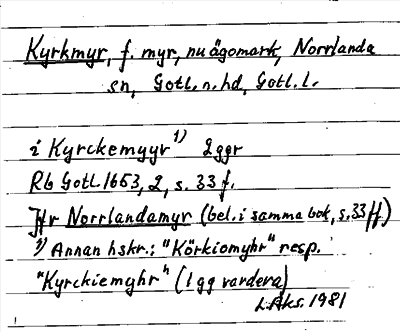 Kyrkmyr, f. myr, nu ägomark, Norrlanda
sn, Gotl. n. hd, Gotl. l.
i Kyrckemyyr 1) 2 ggr
Rb Gotl. 1653, 2, s. 33 f.
Jfr Norrlandamyr (bel. i samma bok, s. 33 ff)
1) Annan hskr.: "Körkiomyhr" resp.
"Kyrckiemyhr" (1 gg vardera)
L. Aks. 1981